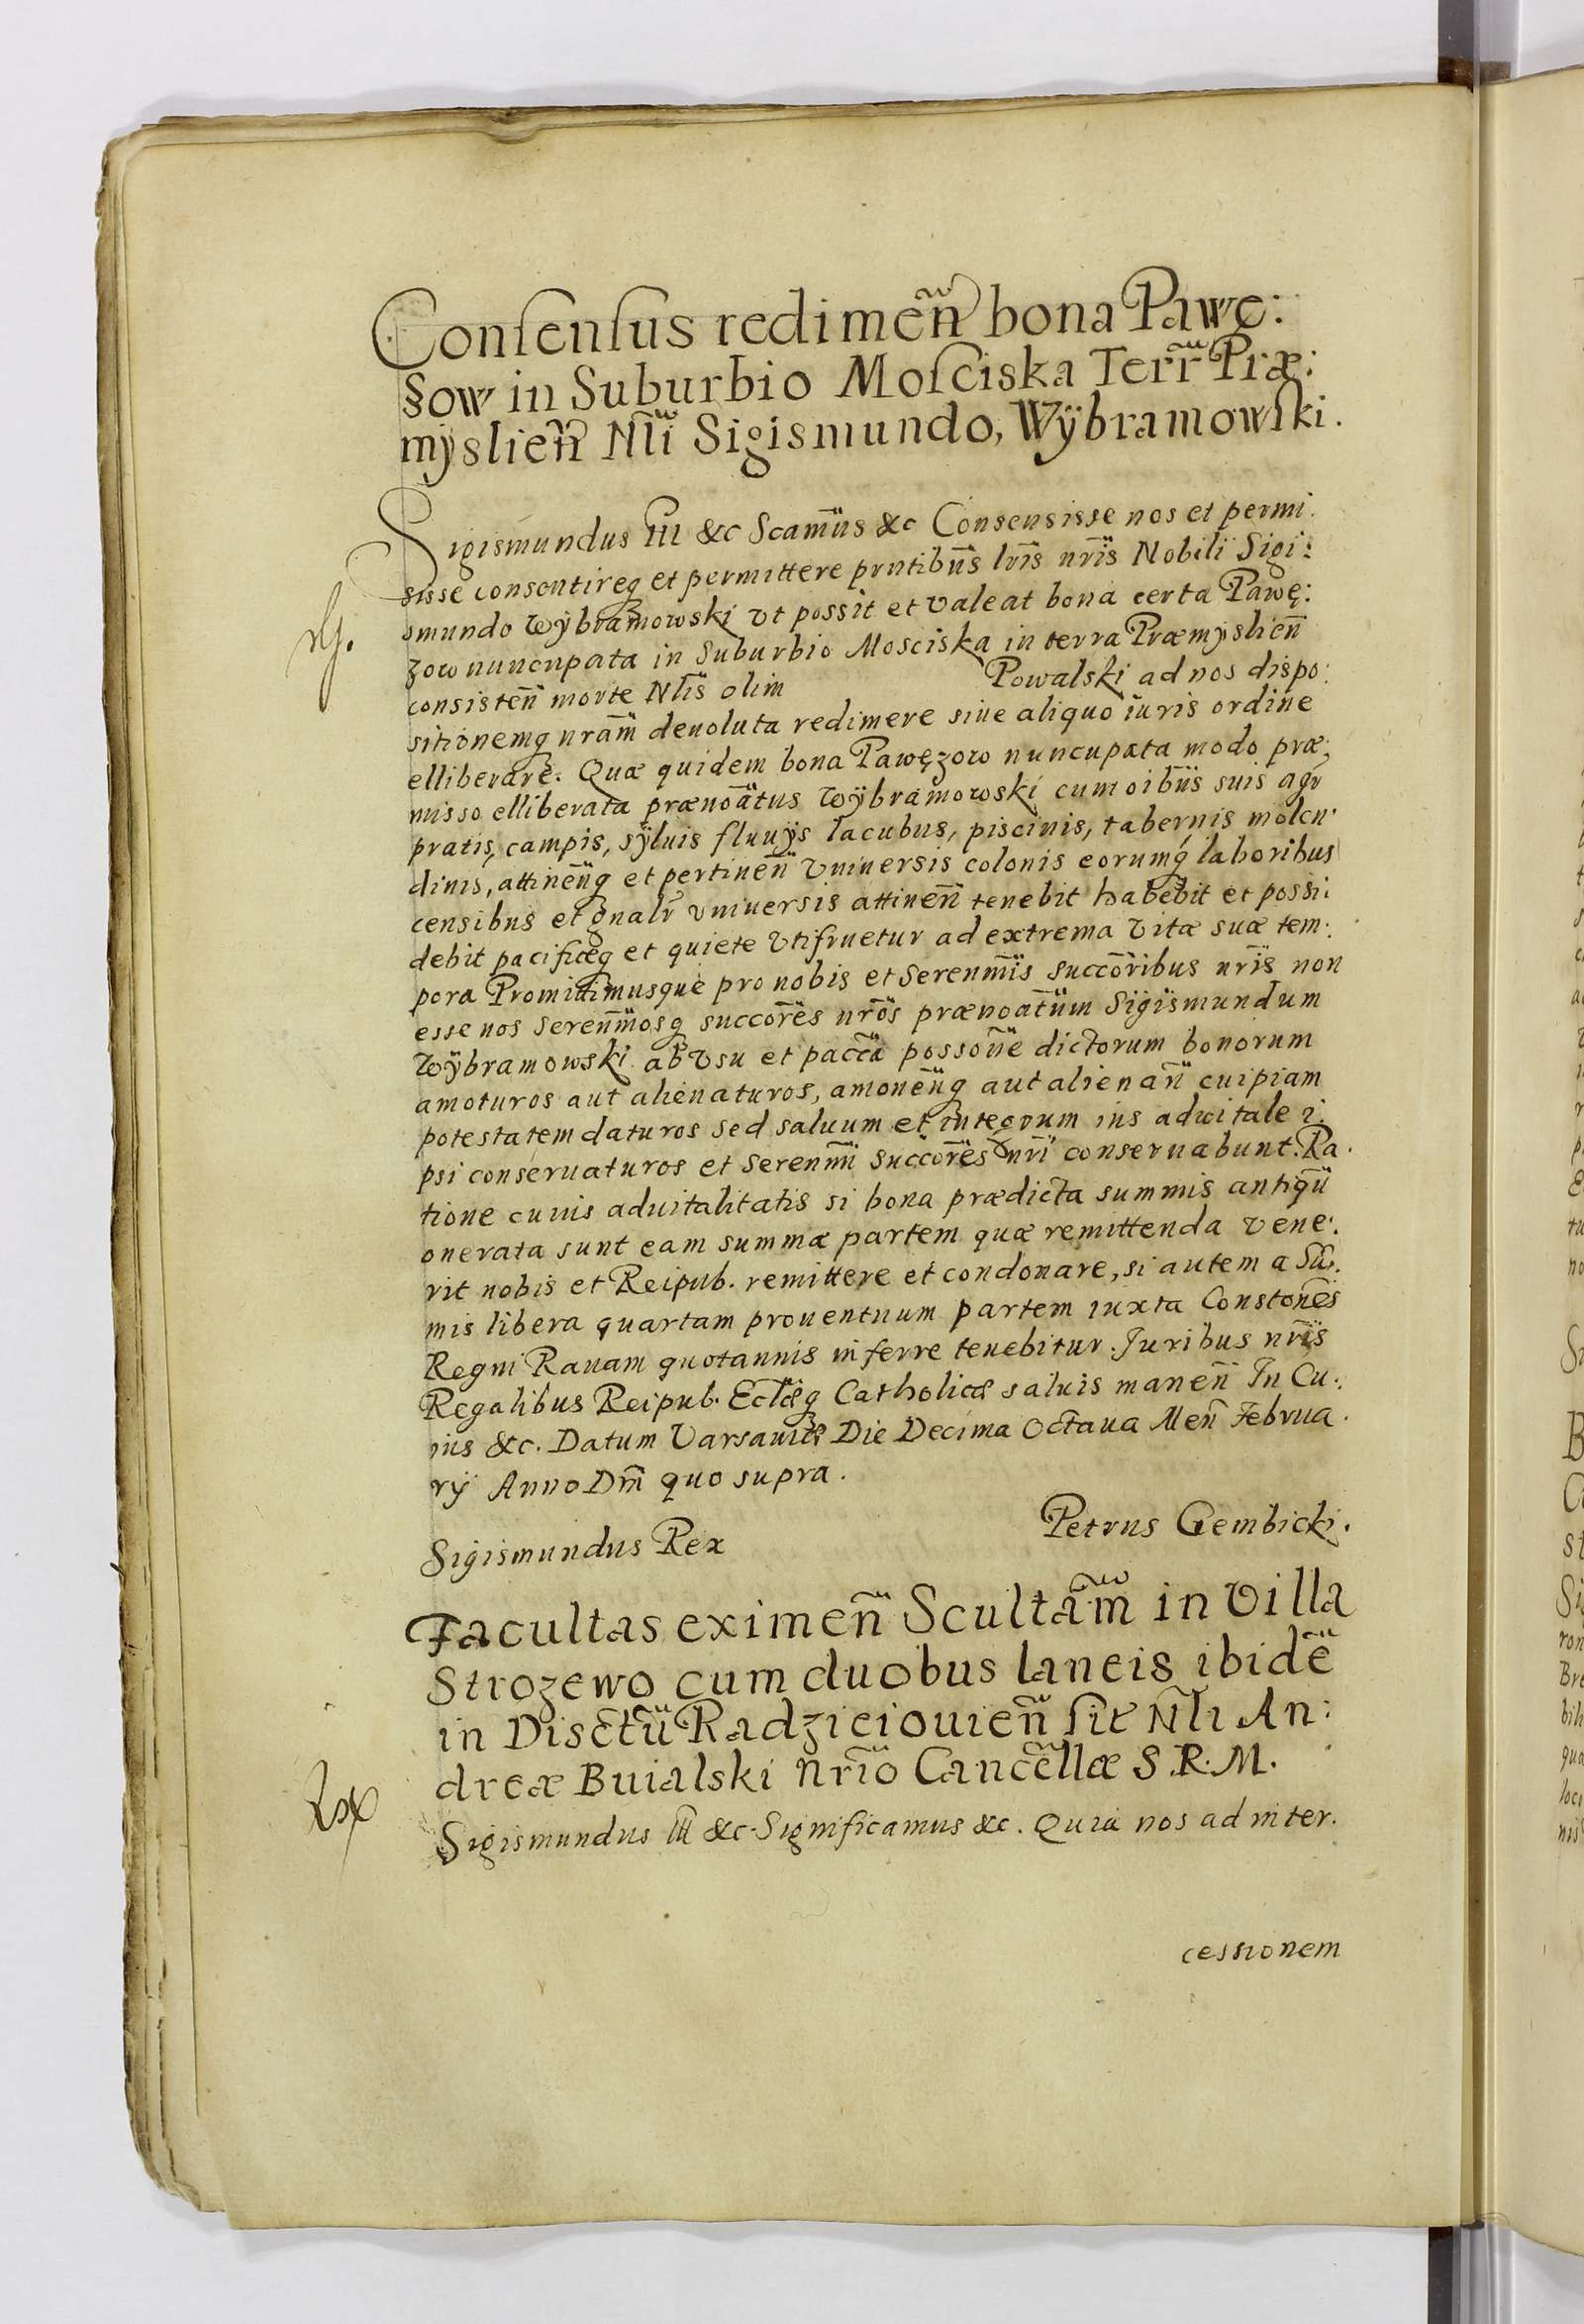 Consensus redimen̄ bona Pawę:
§ow in Suburbio Mosciska Terr̄ Præ:
mÿslien̄ Nl̄i Sigismundo, Wÿbramowski.
Sigismundus III &c Scam̄us &c Consensisse nos et permi.
sisse consentireq et permittere pr̄ntibus lr̄is nr̄is Nobili Sigi:
smundo Wÿbramowski vt possit et valeat bona certa Pawę:
zow nuncupata in Suburbio Mosciska in terra Præmyslien̄
consisten̄ morte Nl̄is olim Powalski ad nos dispo:
sitionemq nram̄ deuoluta redimere siue aliquo iuris ordine
elliberare. Quæ quidem bona Pawęzow nuncupata modo præ:
misso elliberata prænoātus Wÿbramowski cum oībus suis agr̄
pratis, campis, sÿluis fluuÿs lacubus, piscinis, tabernis molen:
dinis, attinen̄q et pertinen̄ vniuersis colonis eorumq laboribus
censibus et gnalr̄ vniuersis attinen̄ tenebit habebit et possi:
debit pacificeq et quiete vtifruetur ad extrema vitæ suæ tem:
pora Promittimusque pro nobis et Serenm̄is succōribus nr̄is non
esse nos serenm̄osq succōres nr̄os prænoatūm Sigismundum
Wÿbramowski ab vsu et pacc̄a possōne dictorum bonorum
amoturos aut alienaturos, amonen̄q aut alienan̄ cuipiam
potestatem daturos sed saluum et integrum ius aduitale i.
psi conseruaturos et serenm̄i succōres nr̄i conseruabunt. Ra.
tione cuius aduitalitatis si bona prædicta summis antiqū
onerata sunt eam summæ partem quæ remittenda vene:
rit nobis et Reipub. remittere et condonare, si autem a Sū:
mis libera quartam prouentuum partem iuxta Constōnes
Regni Rauam quotannis inferre tenebitur. Juribus nr̄is
Regalibus Reipub. Ecl̄æq Catholicæ saluis manen̄ In Cu:
ius &c. Datum Varsauiæ Die Decima Octaua Men̄ Februa.
rÿ Anno Dm̄ quo supra.
Sigismundus Rex Petrus Gembicki.
Facultas eximen̄ Scultām in villa
Strozewo cum duobus laneis ibidē
in Disctū Radzieiouien̄ sit Nl̄i An:
dreæ Buialski nr̄io Cancell̄æ S.R.M.
Sigismundus III &c. Significamus &c. Quia nos ad inter.
cessionem